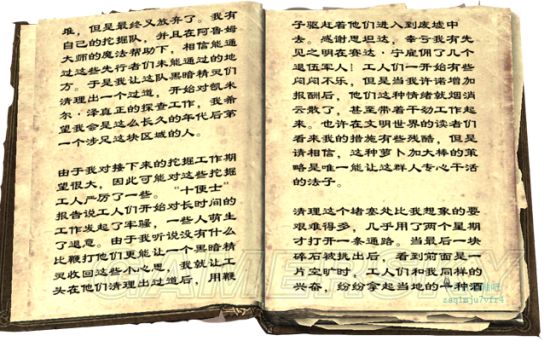 难，但是最终又放弃了。我有
自己的挖掘队，并且在阿鲁姆
大师的魔法帮助下，相信能通
过这些先行者们未能通过的地
方。于是我让这队黑暗精灵们
清理出一个过道，开始对凯米
尔·泽真正的探查工作，我希
望我会是这么长久的年代后第
一个涉足这块区域的人。
由于我对接下来的挖掘工作期
望很大，因此可能对这些挖掘
工人严厉了一些。“十便士”
报告说工人们开始对长时间的
工作发起了牢骚，一些人萌生
了退意。由于我听说没有什么
比鞭打他们更能让一个黑暗精
灵收回这些小心思，我就让工
头在他们清理出过道后，用鞭
子驱赶着他们进入到废墟中
去。感谢思坦达，幸亏我有先
见之明在赛达·宁雇佣了几个
退伍军人！工人们一开始有些
闷闷不乐，但是当我许诺增加
报酬后，他们这种情绪就烟消
云散了，甚至带着干劲工作起
来。也许在文明世界的读者们
看来我的措施有些残酷，但是
请相信，这种萝卜加大棒的策
略是唯一能让这群人专心干活
的法子。
清理这个堵塞处比我想象的要
艰难得多，几乎用了两个星期
才打开一条通路。当最后一块
碎石被挑出后，看到前面是一
片空旷时，工人们和我同样的
兴奋，纷纷拿起当地的一种酒
zaq1mju7vfr4